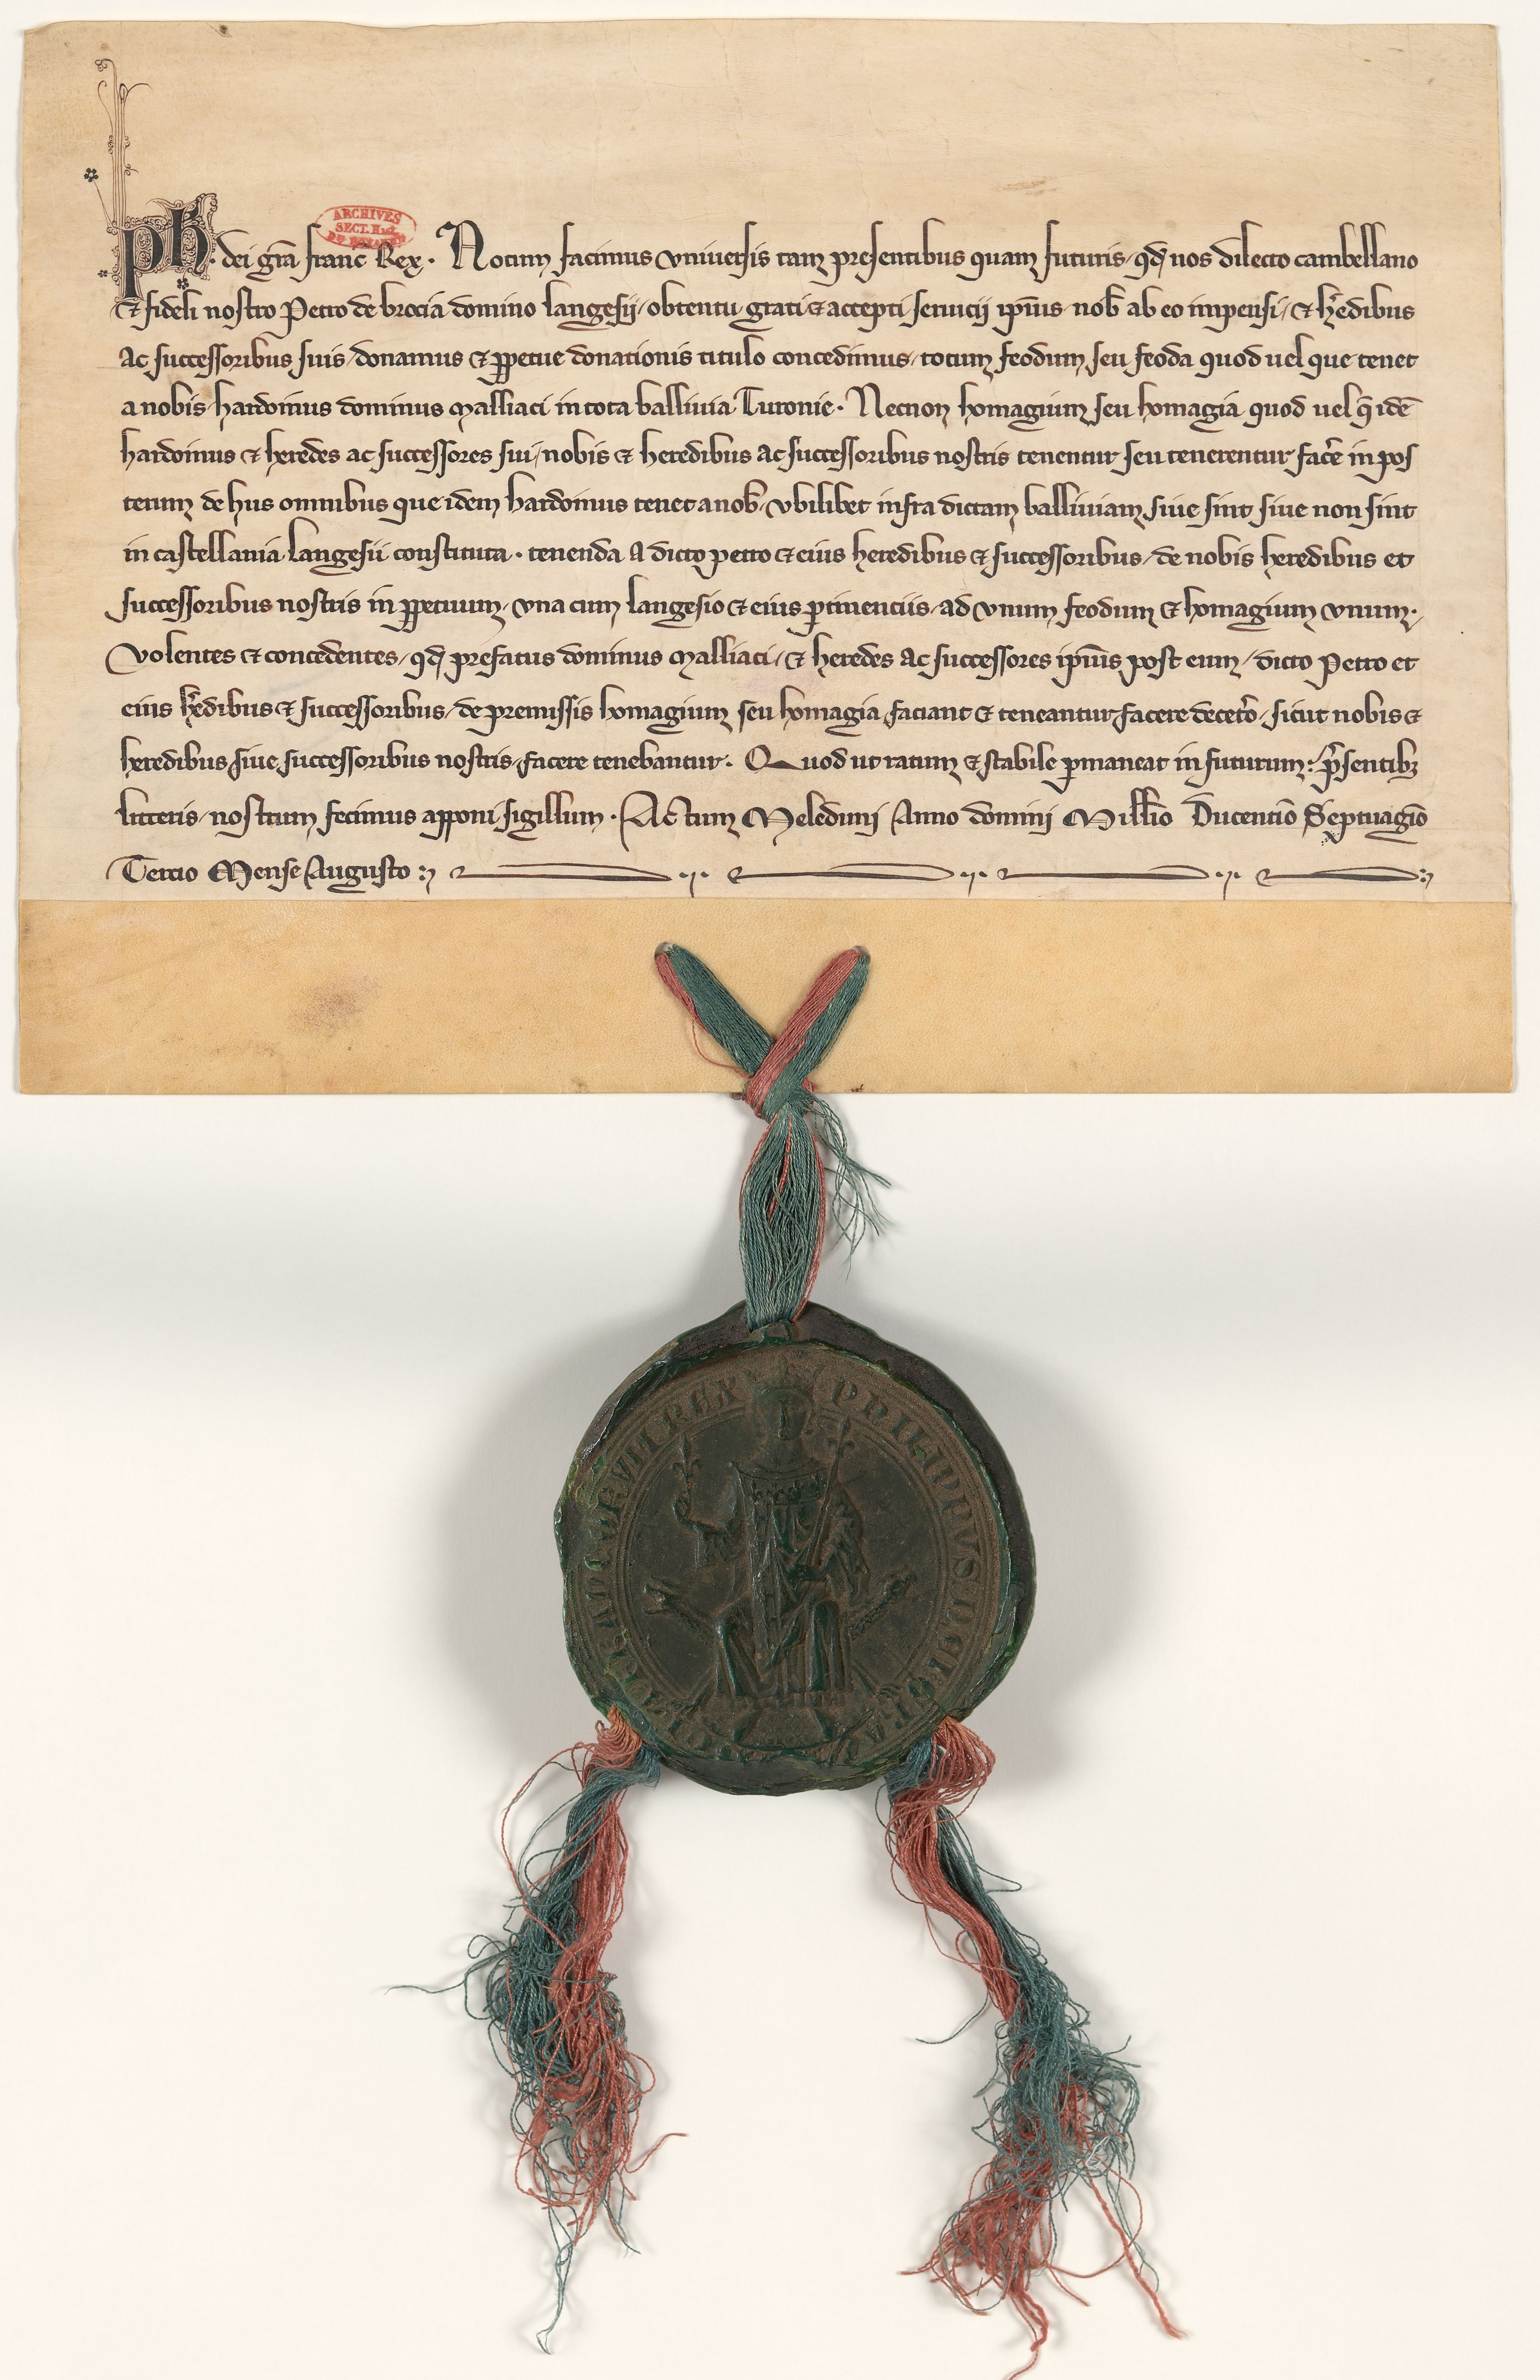 Ph. dei gra franc Rex. Notum facimus vniuersis tam presentibus quam futuris, qd nos dilecto cambellano
ARCHIVES
SECT. Hist.
DU ROYAUME
& fideli nostro Petro de brocia domino langesij, obtentu grati & accepti seruicij ipius nob ab eo impensi, & hedibus
ac successoribus suis, donamus & ppetue donationis titulo concedimus, totum feodum seu feoda quod uel que tenet
a nobis hardoinus dominus Malliaci in tota balliuia Turonie. Necnon homagium seu homagia quod uel q ide
hardoinus & heredes ac successores sui, nobis & heredibus ac successoribus nostris tenentur seu tenerentur face in pos
terum de hiis omnibus que idem hardoinus tenet a nob, vbilibet infra dictam balliuiam, siue sint siue non sint
in castellania langesii constituta. tenenda a dicto petro & eius heredibus & successoribus, de nobis heredibus et
successoribus nostris in ppetuum, vna cum langesio & eius ptinenciis, ad vnum feodum & homagium vnum.
Volentes & concedentes, qd prefatus dominus Malliaci, & heredes ac successores ipius post eum, dicto Petro et
eius hedibus & successoribus, de premissis homagium seu homagia faciant & teneantur facere deceto, sicut nobis &
heredibus siue successoribus nostris, facere tenebantur. Quod ut ratum & stabile pmaneat in futurum: psentibz
litteris, nostrum fecimus apponi sigillum. Actum Meleduni Anno domini Millio Ducentio Septuagio
Tercio Mense Augusto
PHILIPPVS DEI GRA
FRANCORVM REX